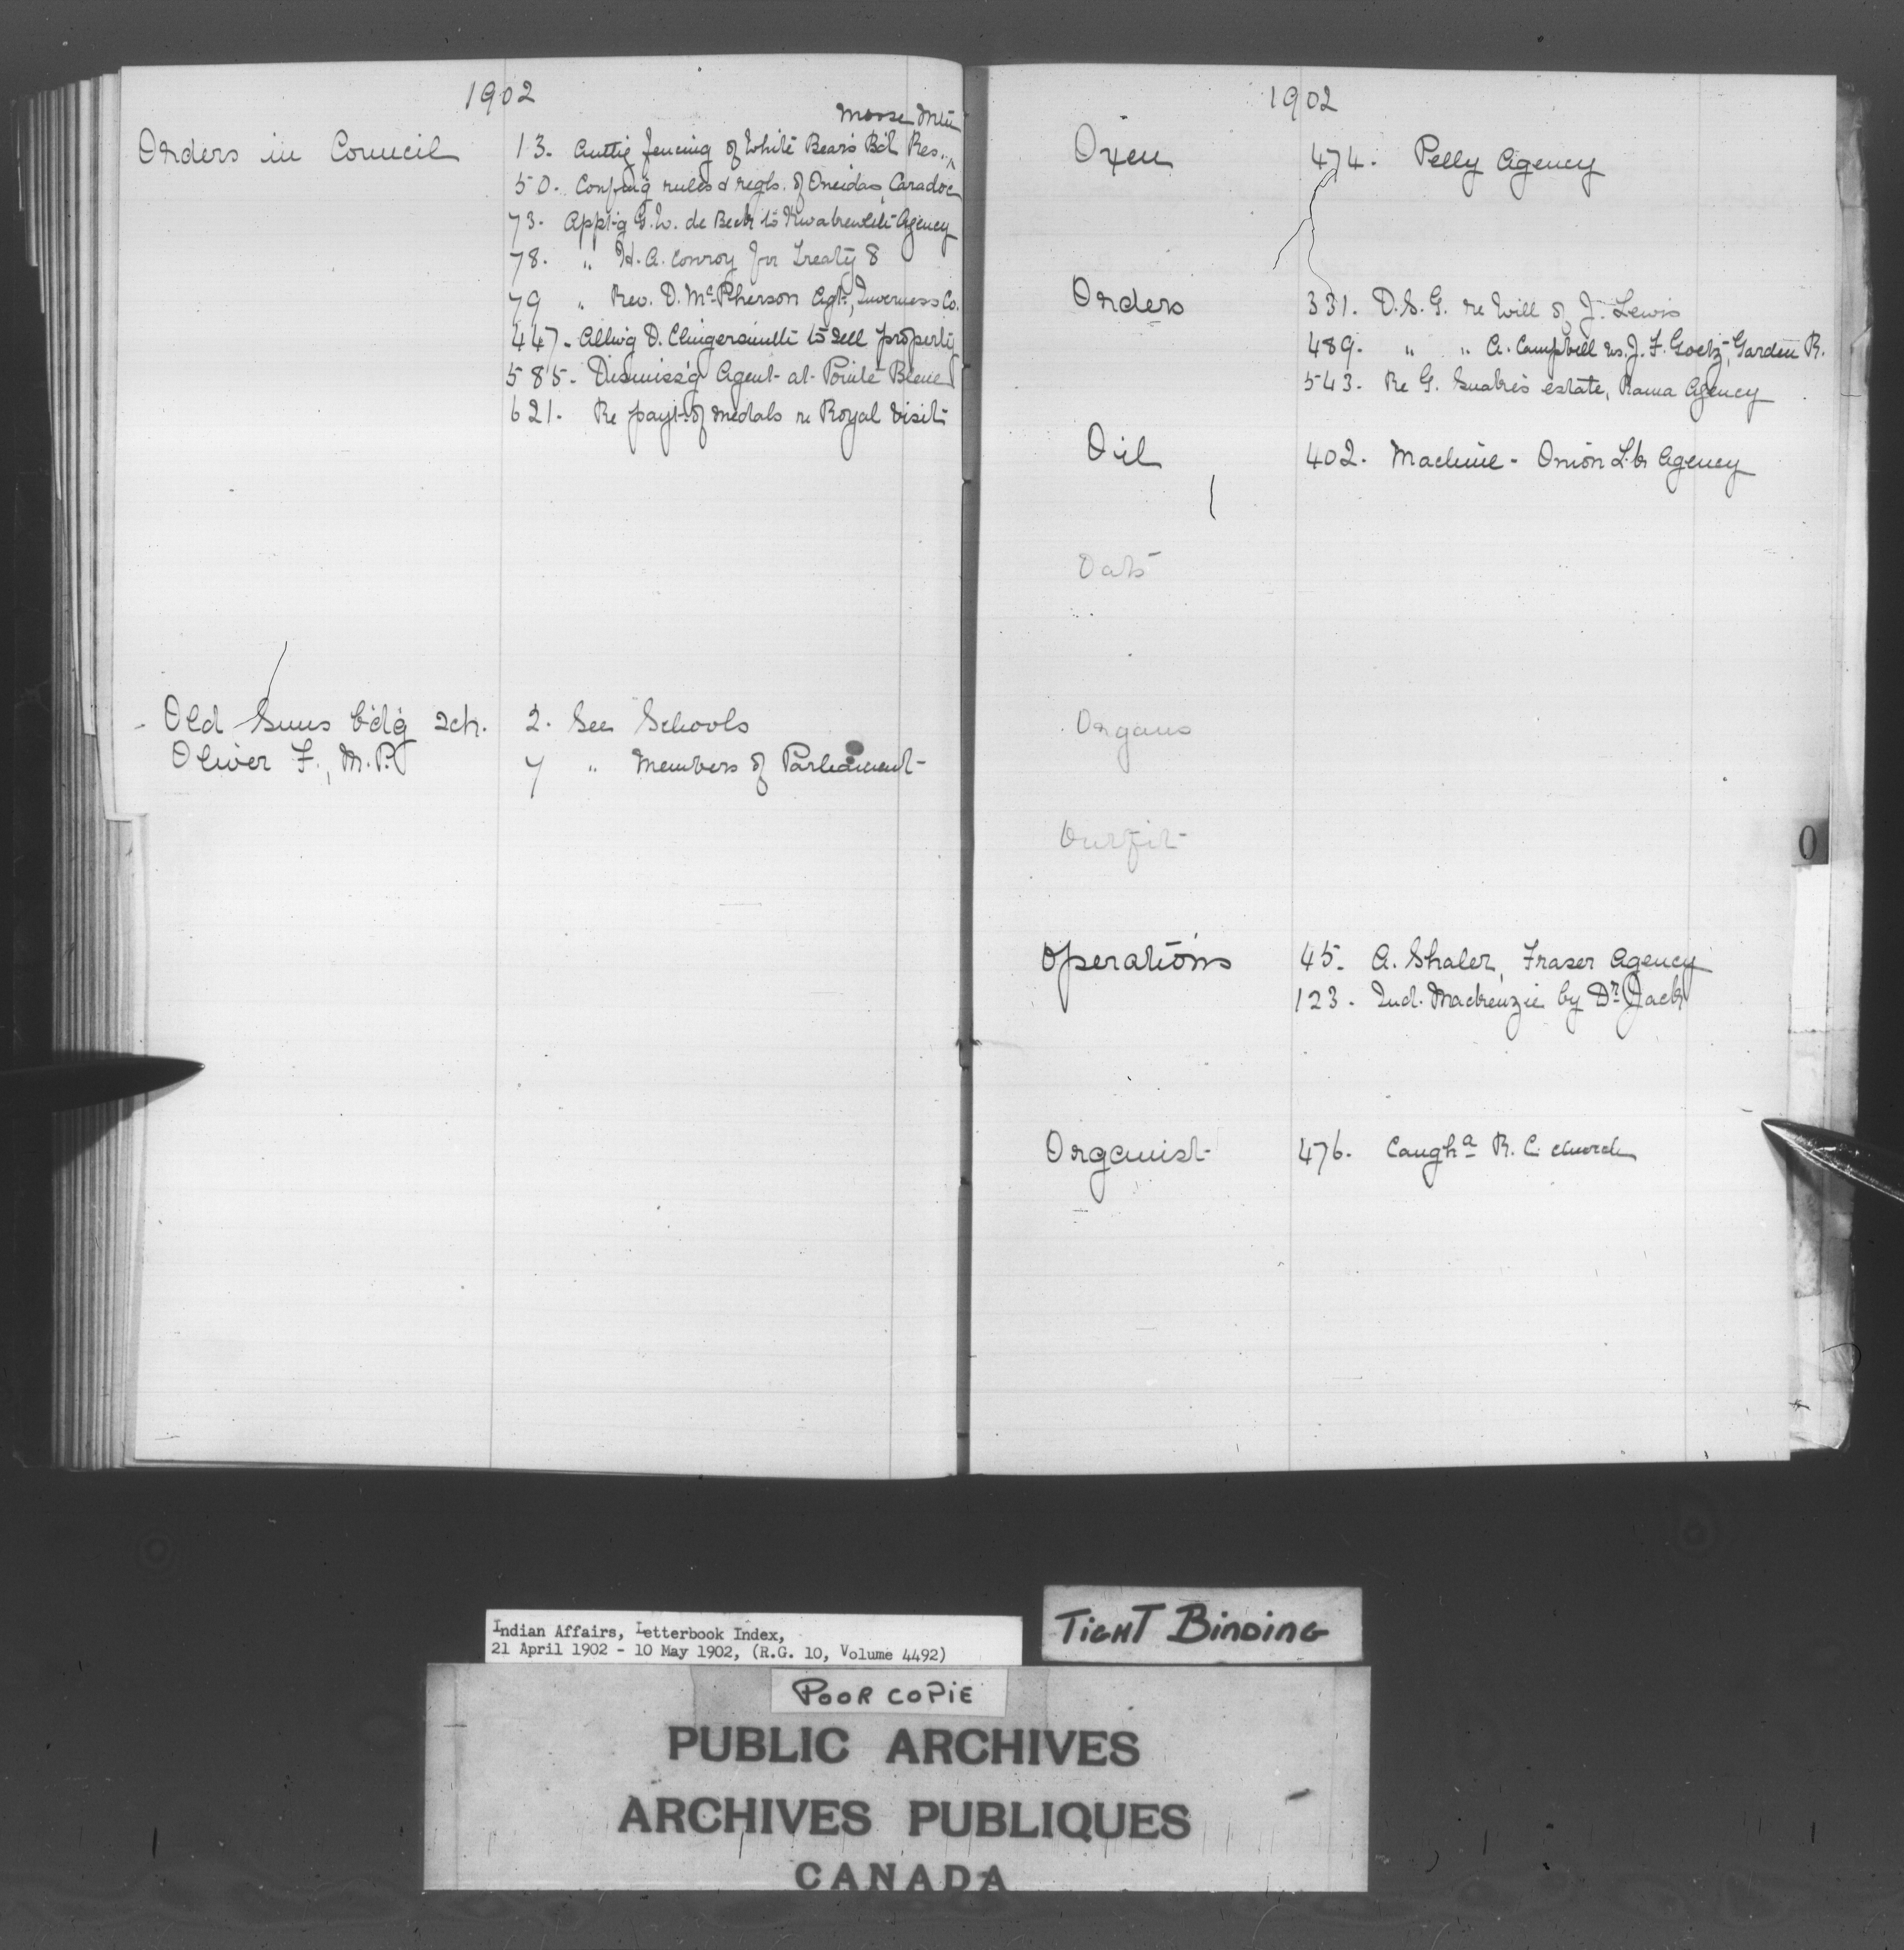 1902
Moose Mtn
Orders in Council 13. Authg fencing of White Bear's Bd Res.. ^
50. Confmg rules & regls. of Oneidas, Caradoc
73. Apptg G. W. de Beck to Kwawkewlth Agency
78. " H. A. Conroy for Treaty 8
79 " Rev. D. McPherson Agt, Inverness Co.
447. Allwg D. Clingersmith to sell property
585. Dismiss'g Agent at Pointe Bleue
621. Re payt of medals re Royal Visit
Old Suns b'dg sch. 2. See Schools
Oliver F., M.P. 7 " Members of Parliament
1902
Oxen 474. Pelly Agency
Orders 331. D.S.G. re Will of J. Lewis
489. " " A. Campbell vs. J. F. Goetz, Garden R.
543. Re G. Snake's estate, Rama Agency
Oil 402. Machine - Onion Lk Agency
Oats
Organs
Outfit
O
Operations 45. A. Shaler, Fraser Agency
123. Ind. Mackenzie by Dr. Jack
Organist 476. Caugha R. C. church
Indian Affairs, Letterbook Index,
21 April 1902 - 10 May 1902, (R.G. 10, Volume 4492)
TIGHT BINDING
POOR COPIE
PUBLIC ARCHIVES
ARCHIVES PUBLIQUES
CANADA